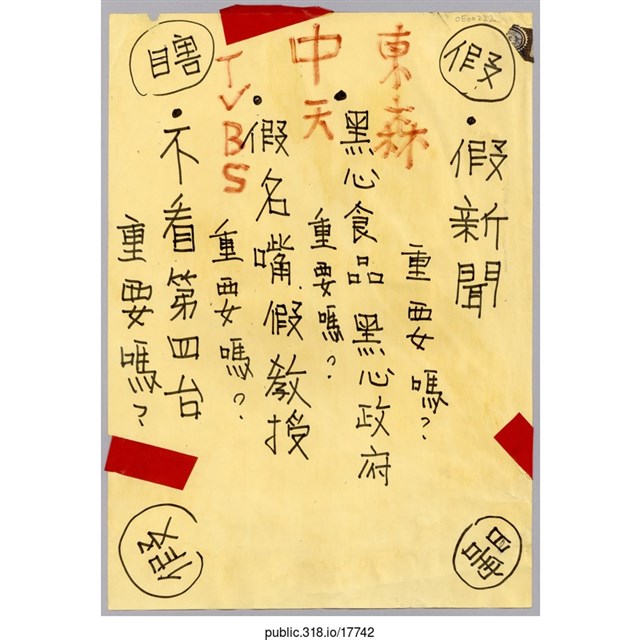 假
東森
中天
TVBS
瞎
•假新聞
重要嗎?
•黑心食品 黑心政府
重要嗎?
•假名嘴假教授
重要嗎?
•不看第四台
重要嗎?
假
public.318.io/17742